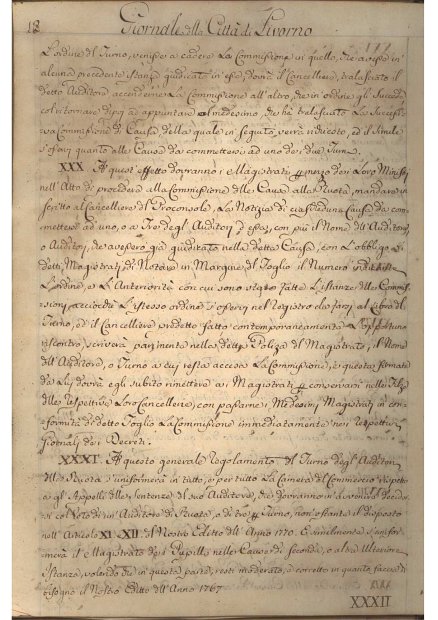 18 Giornale della Città di Livorno
L'ordine del Turno, venisse a cadere La Commissione in quello, che avesse in
alcuna precedente Istanza giudicato in essa, dovrà il Cancelliere, tralasciato il
detto Auditore accenderne La Commissione all'altro, che in ordine gli Succede,
col ritornare dipoi ad appuntare al medesimo, che hà tralasciato La Successi=
va Commissione di Causa della quale in seguito, verrà richiesto, ed il simile
s'osservi quanto alle Cause da commettersi ad uno dei due Turni.
XXX A quest'effetto dovranno i Magistrati p mezzo dei Loro Ministri
nell'Atto di procedere alla Commissione delle Cause alla Ruota, mandare in
scritto al Cancelliere di Proconsolo, La Notizia di ciascheduna Causa da com=
mettersi ad uno, o a Tre degl'Auditori d'essa, con più il Nome dell'Auditore,
o Auditori, che avessero già giudicato nella detta Causa, con L'obbligo a i
detti Magistrati di Notare in Margine del Foglio il Numero
L'ordine, e L'Anteriorità con cui sono state fatte L'Istanze delle Commis=
sioni, acciocchè L'istesso ordine s'osservi nel registro da farsi al Libro del
Turno, ed il Cancelliere predetto fatto contemporaneamente L'opportuno
riscontro, scriverà parimente nella detta Poliza del Magistrato, il Nome
dell'Auditore, o Turno a cui resta accesa La Commissione, e questa firmata
da Lui dovrà egli subito rimettere a i Magistrati p conservarsi nelle Filze
delle respettive Loro Cancellerie, con passarne i Medesimi Magistrati in con=
formità di detto Foglio La Commissione immediatamente nei respettivi
Giornali dei Decreti.
XXXI A questo generale regolamento del Turno degl'Auditori
della Ruota s'uniformerà in tutto, e per tutto La Camera del Commercio rispetto
a gl'Appelli dalle sentenze del suo Auditore, che dovranno in avvenire decider=
si col Voto di un'Auditore di Ruota, o di tre p Turno, non ostante il disposto
nell'Articolo XI e XII del Nostro Editto dell'Anno 1770. E similmente s'unifor=
merà il Magistrato dei Pupilli nelle Cause di seconda, o altra Ulteriore
Istanza, volendo che in questa parte, resti moderato, e corretto in quanto faccia di
bisogno il Nostro Editto dell'Anno 1767
XXXII